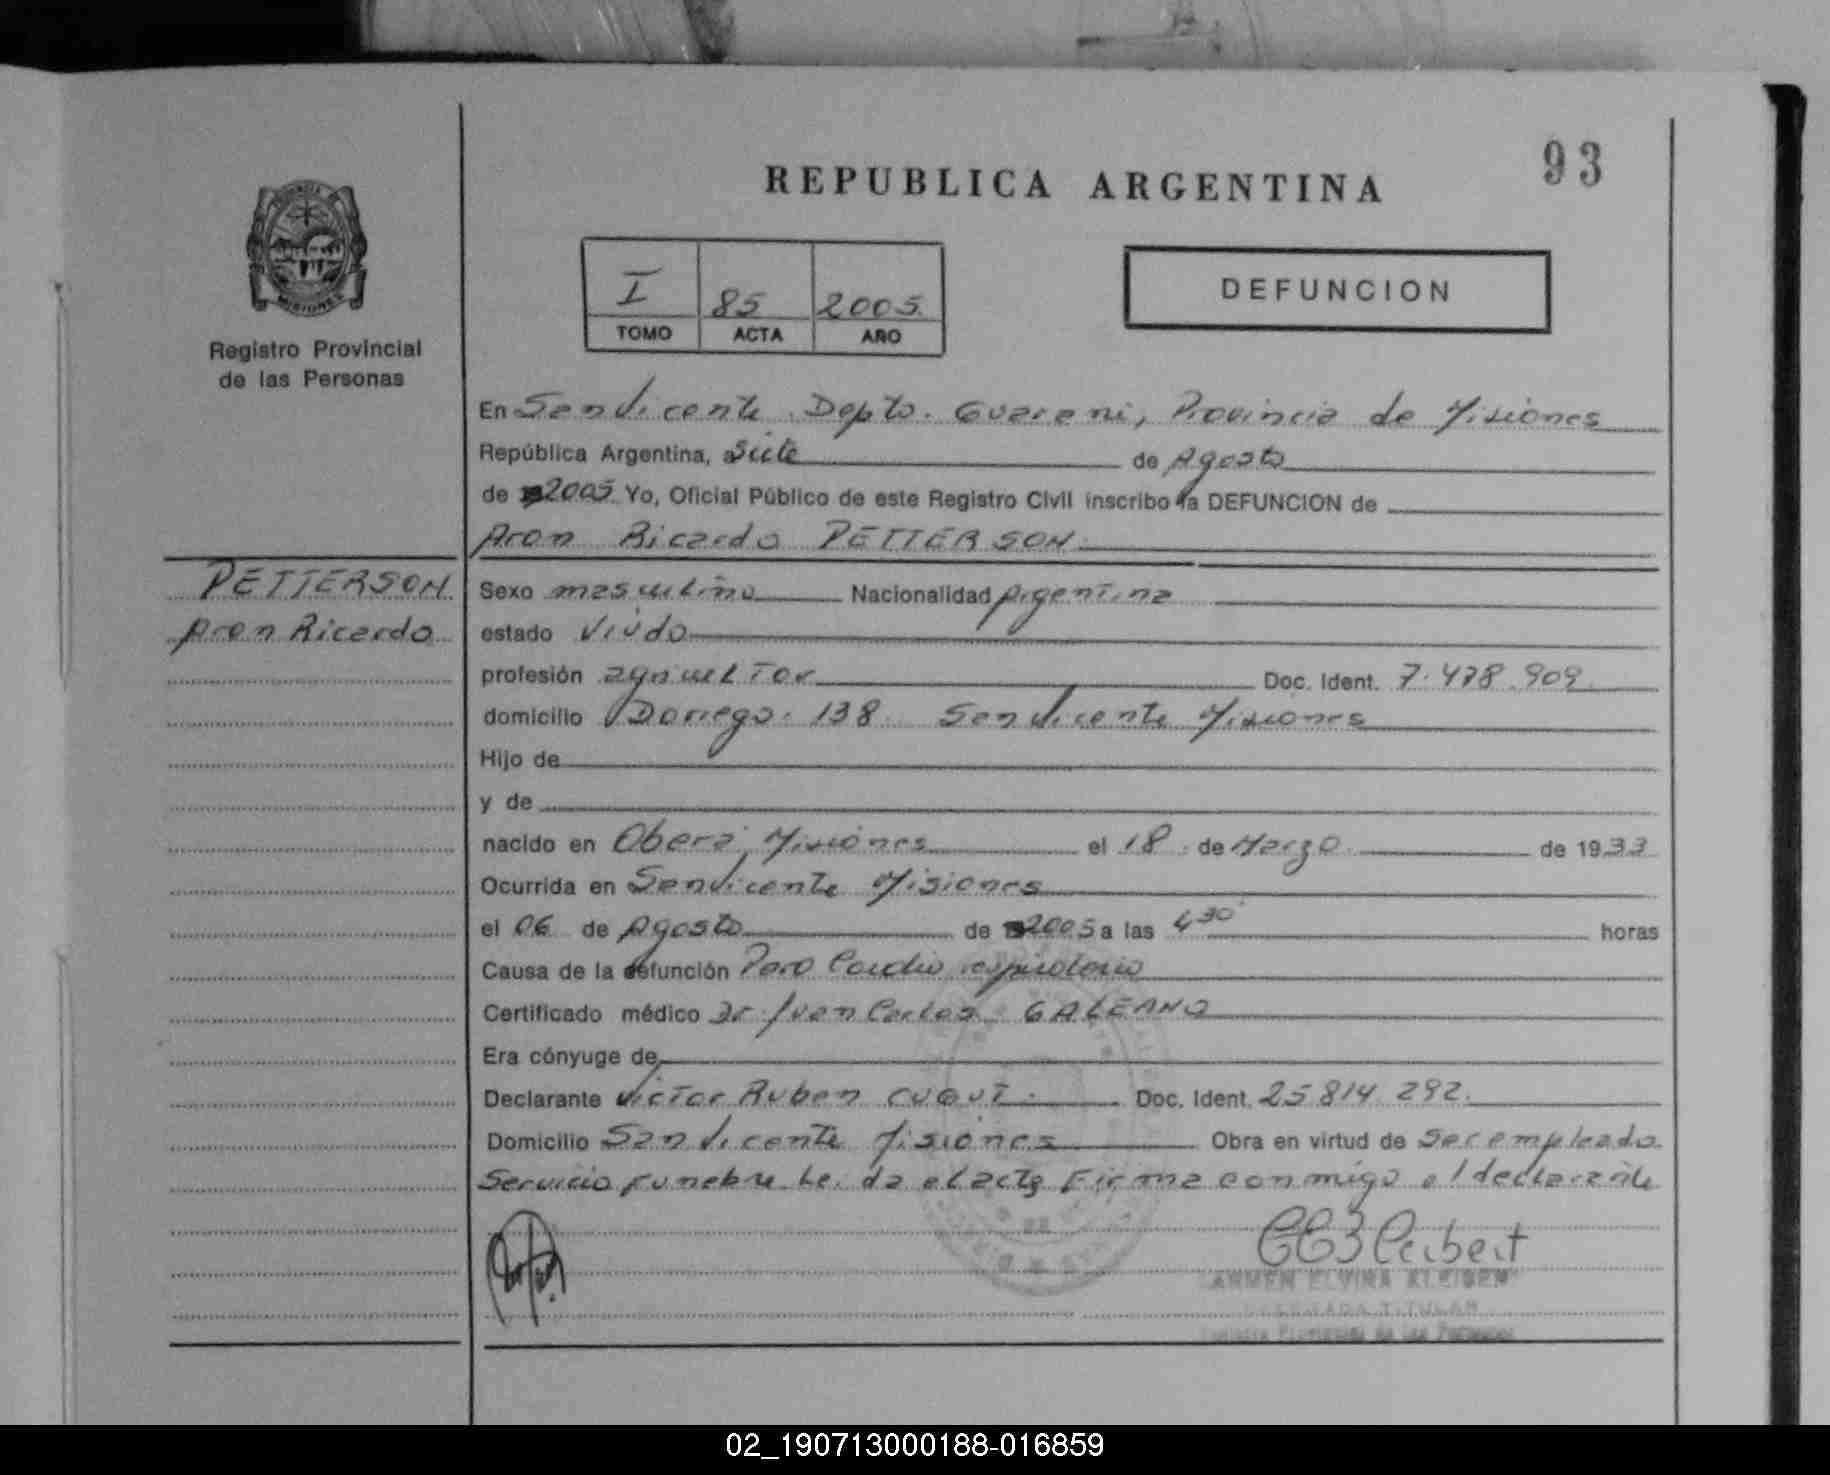 93
REPUBLICA ARGENTINA
MISIONES
Registro Provincial
de las Personas
I 85 2005
TOMO ACTA AÑO
DEFUNCION
En San Vicente Depto. Guarani, Provincia de Misiones
República Argentina, a Siete de Agosto
de 2005 Yo, Oficial Público de este Registro Civil inscribo la DEFUNCION de
Aron Ricardo PETTERSON
PETTERSON
Aron Ricardo
Sexo masculino Nacionalidad Argentina
estado Viudo
profesión agricultor Doc. Ident. 7.478.909
domicilio Dorrego 138 San Vicente Misiones
Hijo de
y de
nacido en Obera Misiones el 18 de Marzo de 1933
Ocurrida en San Vicente Misiones
el 06 de Agosto de 2005 a las 4 30 horas
Causa de la defunción Paro Cardio respiratorio
Certificado médico Dr Juan Carlos GALEANO
Era cónyuge de
Declarante Victor Ruben CUQUI Doc. Ident. 25.814.292.
Domicilio San Vicente Misiones Obra en virtud de Ser empleado
Servicio funebre Leida el acta Firma conmigo el declarante
CARMEN ELVIRA
DELEGADA TITULAR
Registro Provincial de las Personas
02_190713000188-016859